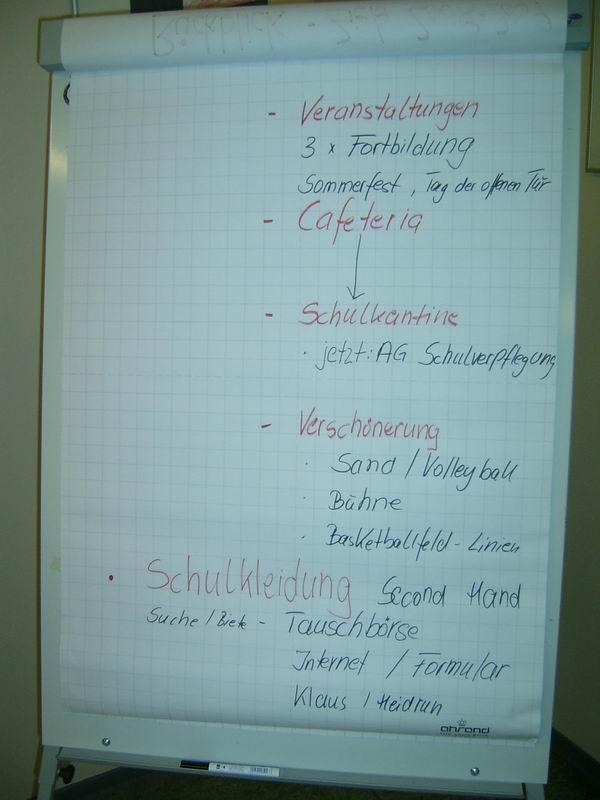 Rückblick -
- Veranstaltungen
3 x Fortbildung
Sommerfest, Tag der offenen Tür
- Cafeteria
- Schulkantine
· jetzt: AG Schulverpflegung
- Verschönerung
· Sand / Volleyball
· Bühne
· Basketballfeld - Linien
• Schulkleidung Second Hand
Suche / Biete - Tauschbörse
Internet / Formular
Klaus / Heidrun
ahrend